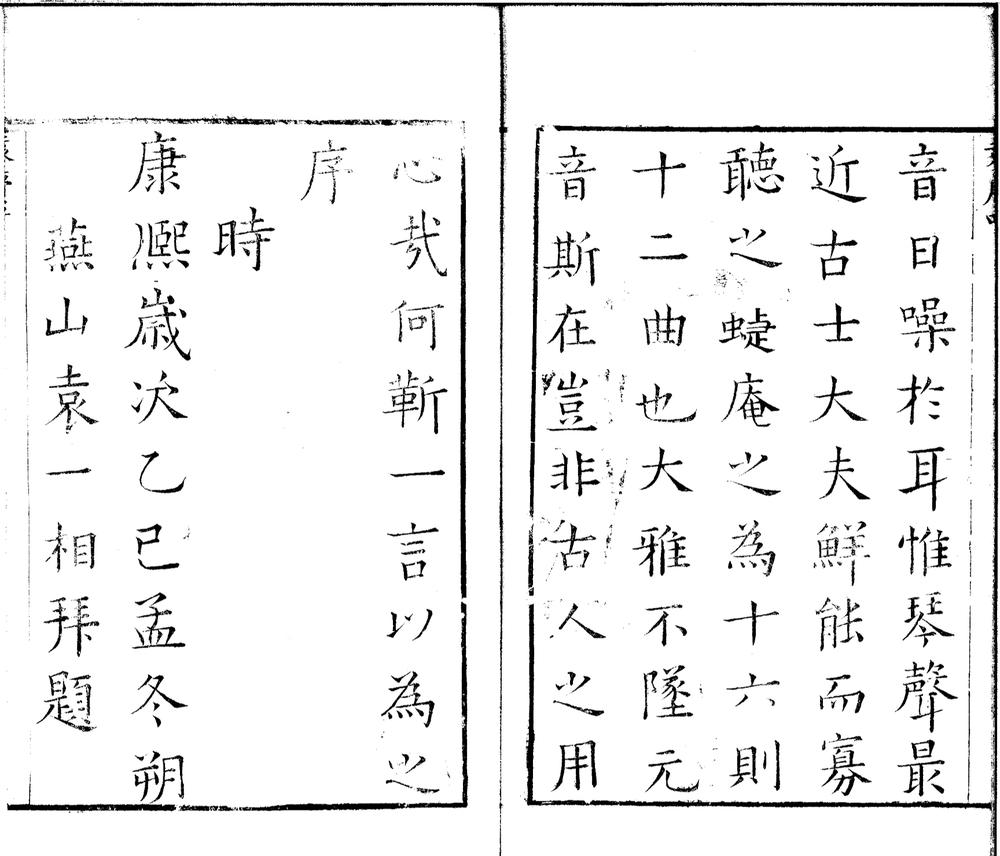 音日噪於耳惟琴聲最
近古士大夫鮮能而寡
聽之蜨庵之為十六則
十二曲也大雅不墜元
音斯在豈非古人之用
心㢤何靳一言以為之
序
時
康熈歳次乙巳孟冬朔
燕山袁一相拜題